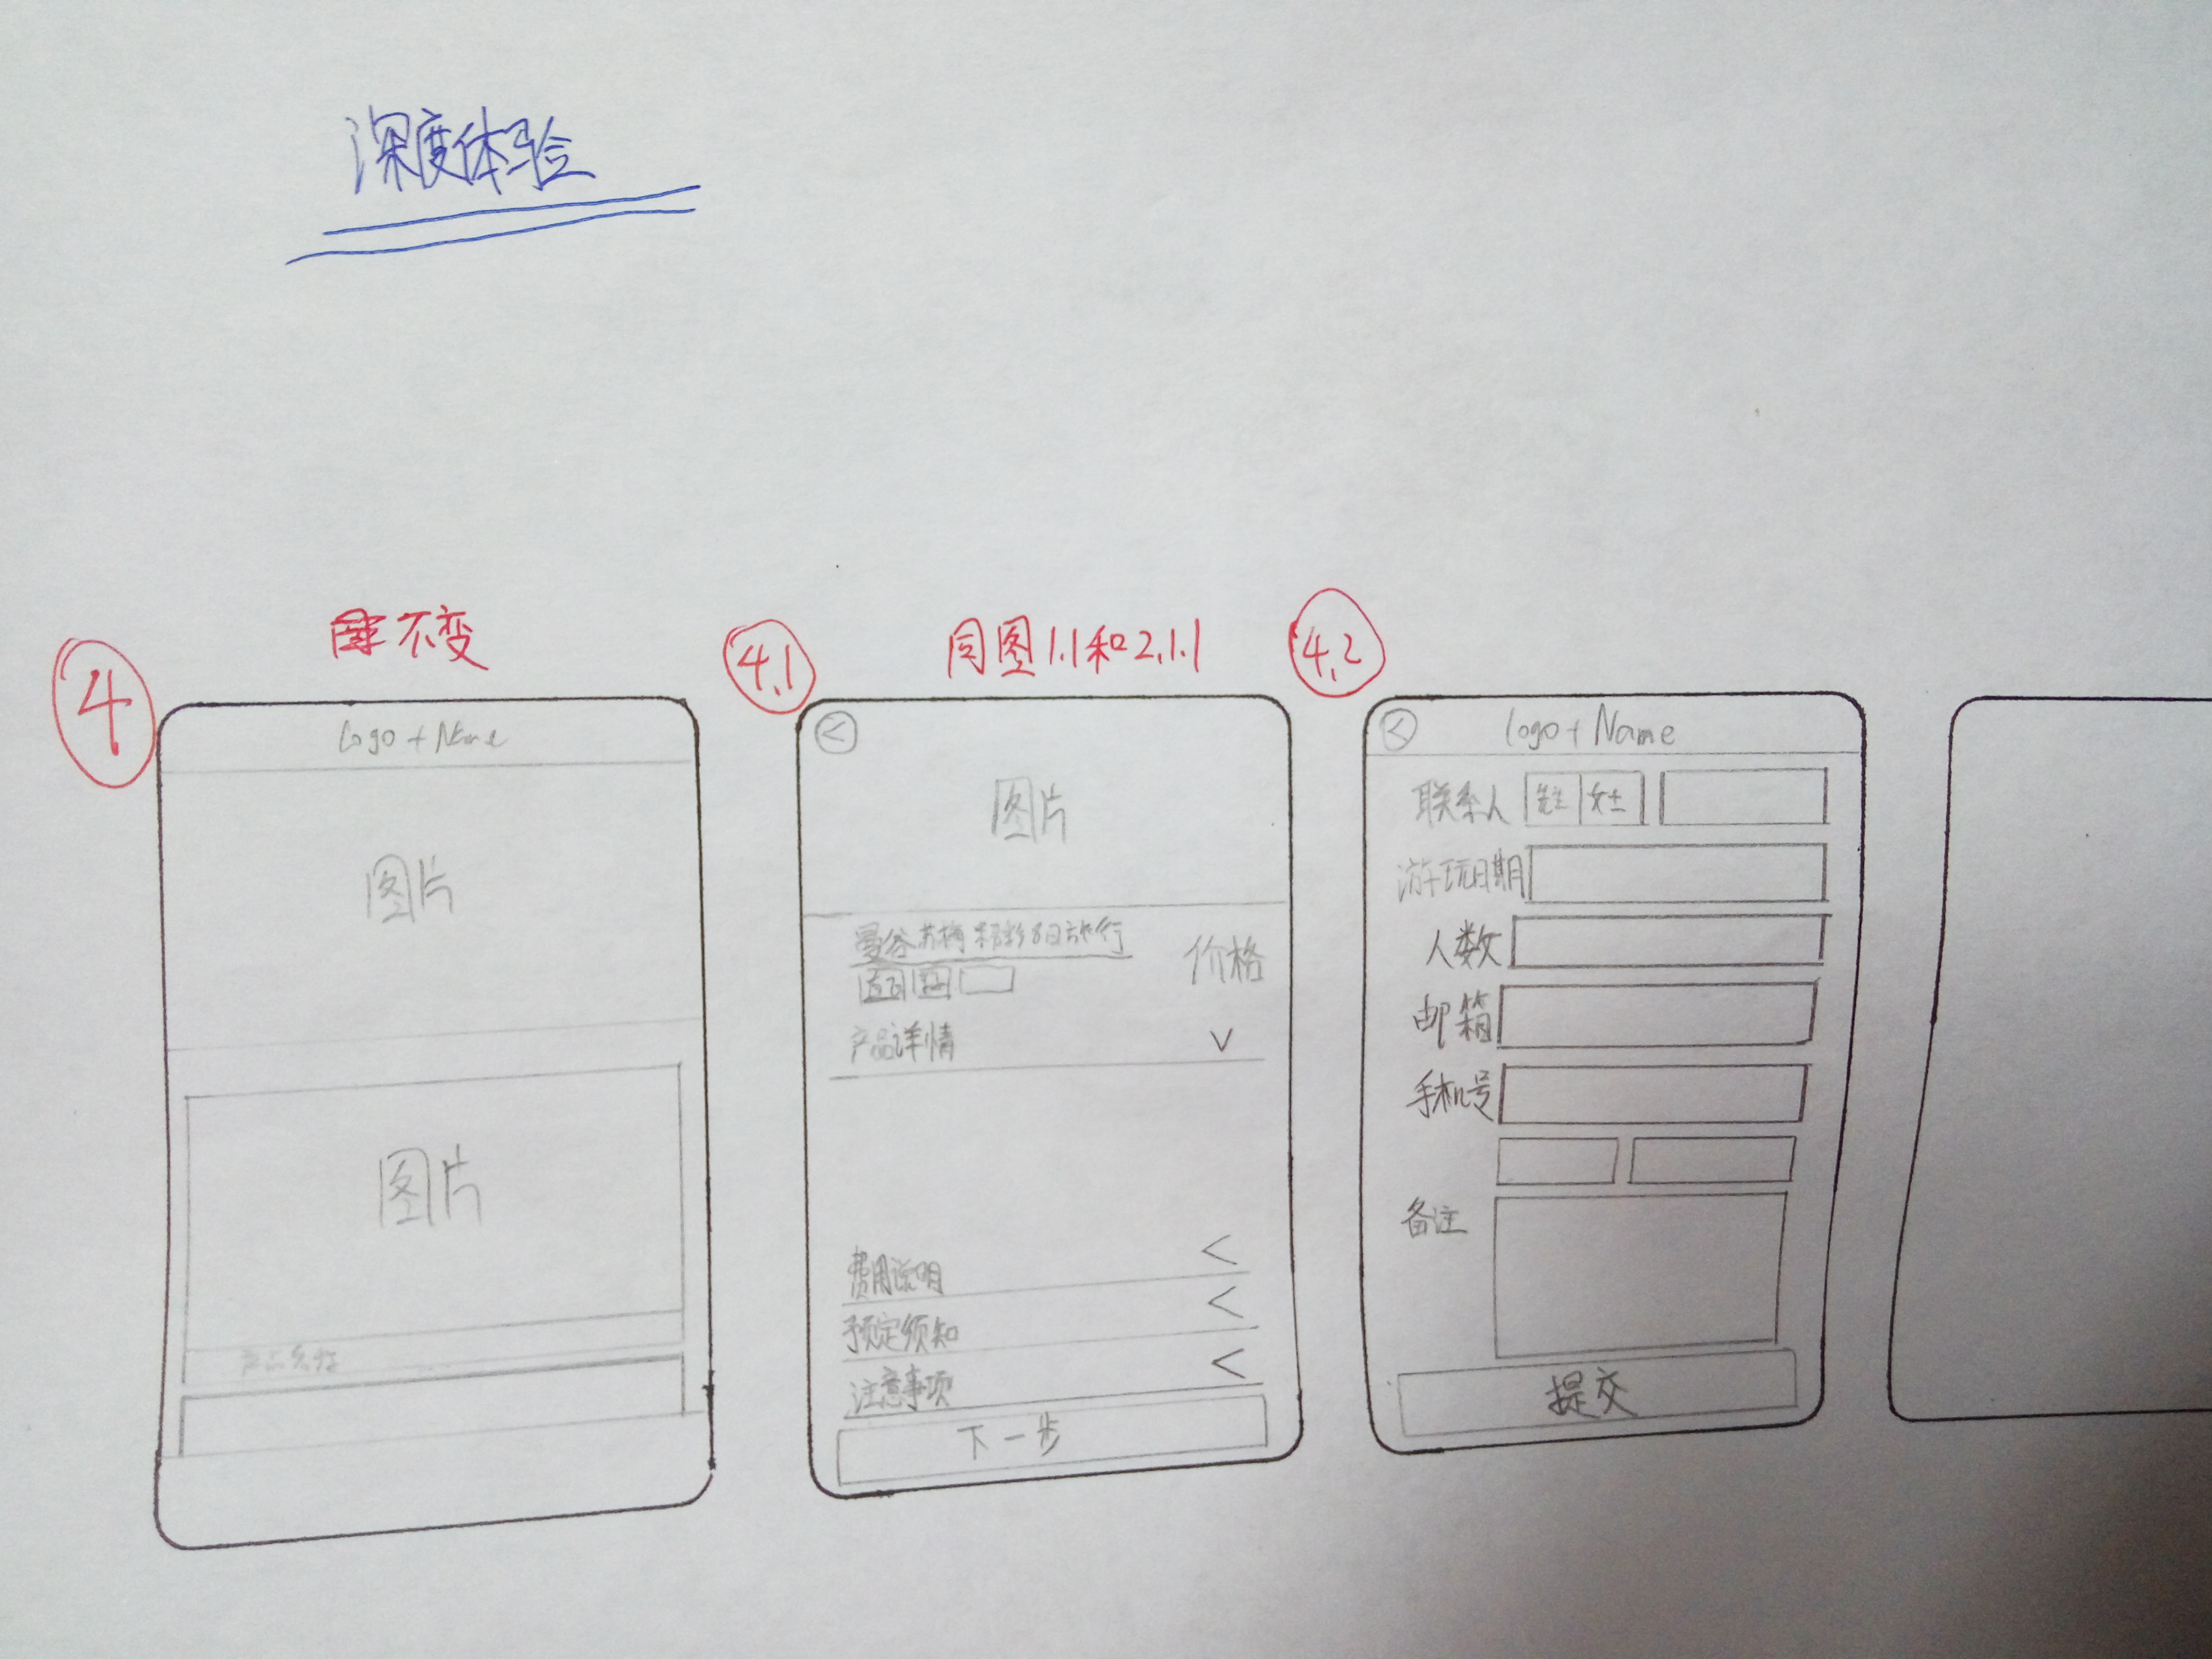 深度体验
4
不变
Logo + Name
图片
图片
产品名称
4.1
同图1.1和2.1.1
<
图片
曼谷苏梅 8日旅行
价格
产品详情
费用说明 <
预定须知 <
注意事项 <
下一步
4.2
< logo + Name
联系人 先生 女士
游玩日期
人数
邮箱
手机号
备注
提交